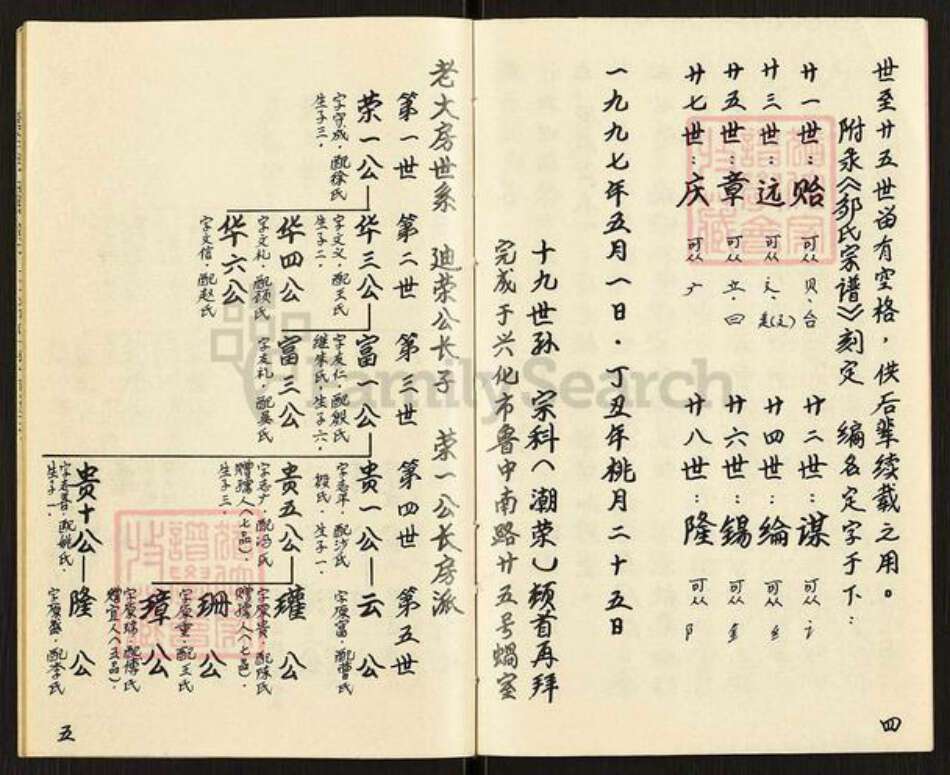 世至廿五世畄有空格，供后辈续载之用。
附录《邹氏宗谱》刻定 编名定字于下：
廿一世：贻 可从 贝、台 廿二世：谋 可从 讠
廿三世：远 可从 辶、袁(元) 廿四世：纶 可从 纟
廿五世：章 可从 立、曰 廿六世：锡 可从 金
廿七世：庆 可从 广 廿八世：隆 可从 阝
一九九七年五月一日·丁丑年桃月二十五日
十九世孙 宗科（潮荣）頓首再拜
完成于兴化市鲁中南路廿五号蝸室
四
老大房世系 迪荣公长子 荣一公长房派
第一世 第二世 第三世 第四世 第五世
荣一公 华三公 富一公 贵一公 云公
字守成，配徐氏
生子三．
字文义，配王氏
生子二．
字友仁，配殷氏
继朱氏，生子六．
字志平．配沙氏
殷氏．生子一．
字原富，配曹氏
华四公 富三公 贵五公 瓘公
字文礼，配顾氏
字友礼，配吴氏
字志广，配冯氏
赠孺人（七品）．
生子三．
字原贵，配陈氏
赠孺人（七品）．
华六公 珊公
字文信，配赵氏
字原重，配王氏
璋公
字原瑞，配傅氏
赠宜人（五品）．
贵十公 隆公
字志善，配姚氏．
生子一．
字原盛，配李氏
五
FamilySearch